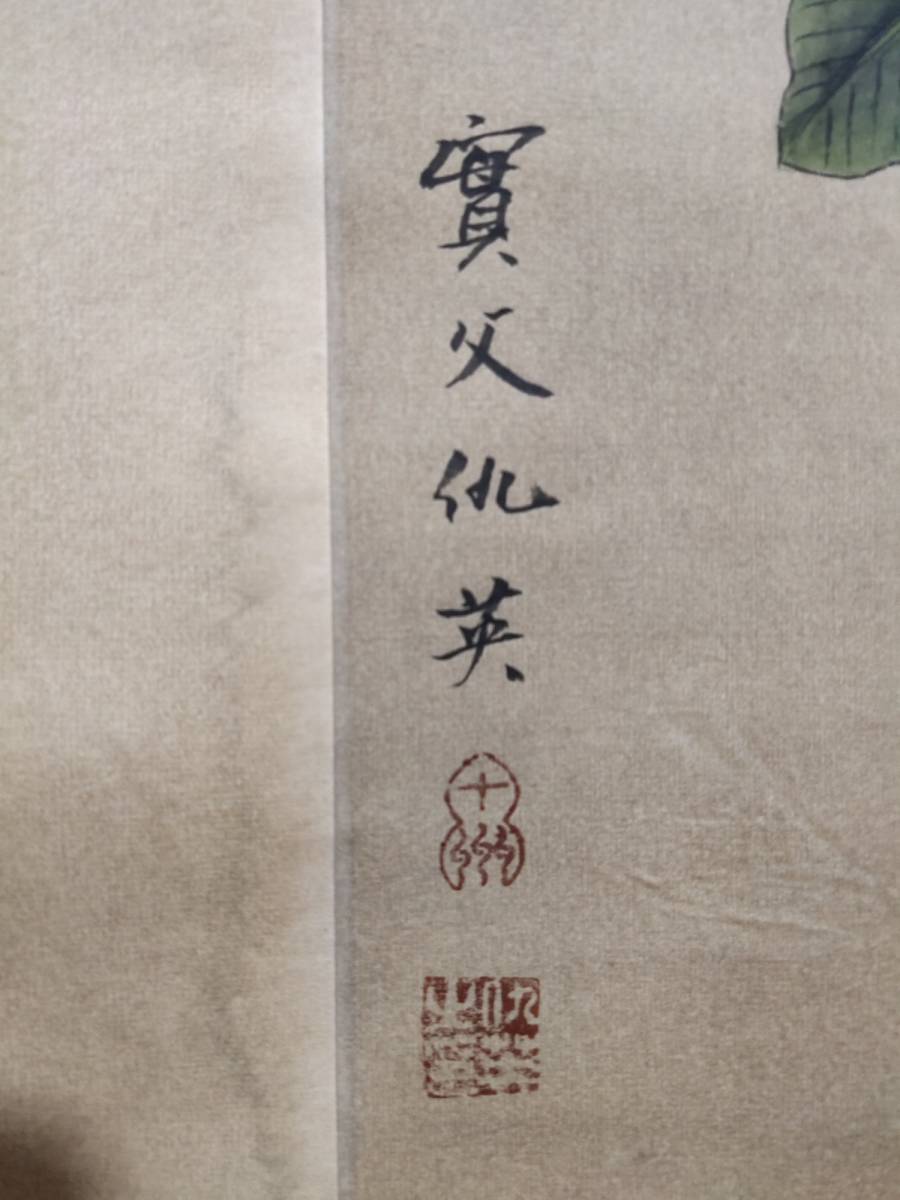 實父仇英
十洲